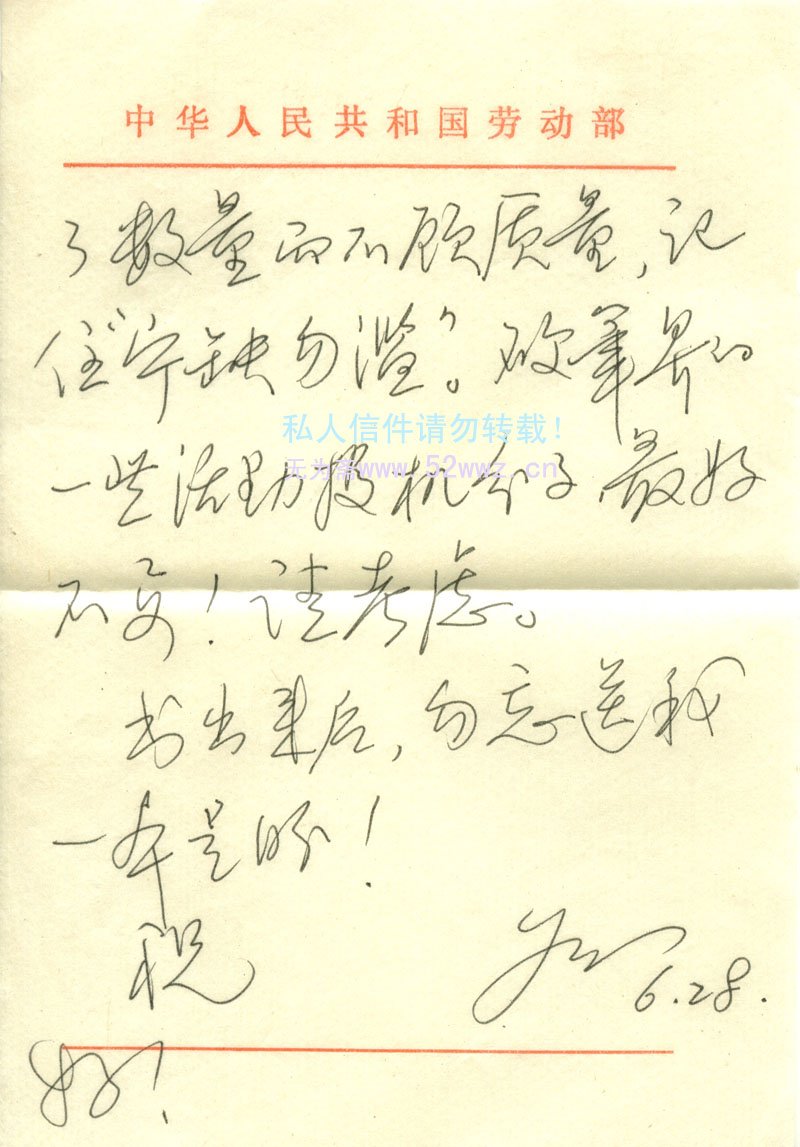 中华人民共和国劳动部
了数量而不顾质量,记
住“宁缺勿滥”。硬笔界的
私人信件请勿转载!
无为斋www.52wwz.cn
一些活动投机分子,最好
不要!请考虑。
书出来后,勿忘送我
一本是盼!
祝
6.28.
好!